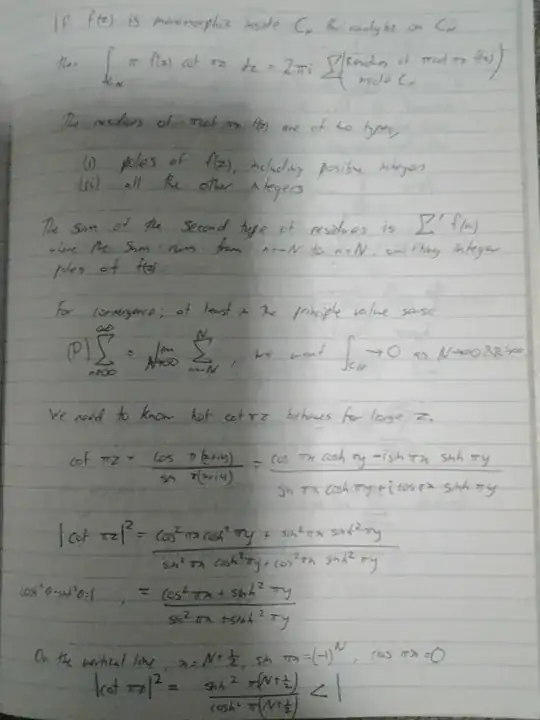 If f(z) is meromorphic inside C_N & analytic on C_N
then ∫_{C_N} π f(z) cot πz dz = 2πi Σ (Residues of π cot πz f(z) inside C_N)
The residues of π cot πz f(z) are of two types,
(i) poles of f(z), including positive integers
(ii) all the other integers
The sum of the second type of residues is Σ' f(n)
where the sum runs from n=-N to n=N, omitting integer
poles of f(z)
For convergence, at least in the principle value sense
(P) Σ_{n=-∞}^{∞} = lim_{N→∞} Σ_{n=-N}^{N}, we want ∫_{C_N} → 0 as N→∞
We need to know hot cot πz behaves for large z.
cot πz = cos π(x+iy) / sin π(x+iy) = (cos πx cosh πy - i sin πx sinh πy) / (sin πx cosh πy + i cos πx sinh πy)
|cot πz|² = (cos² πx cosh² πy + sin² πx sinh² πy) / (sin² πx cosh² πy + cos² πx sinh² πy)
cosh²θ - sinh²θ = 1, = (cos² πx + sinh² πy) / (sin² πx + sinh² πy)
On the vertical line, x = N+½, sin πx = (-1)^N, cos πx = 0
|cot πz|² = sinh² π(N+½) / cosh² π(N+½) < 1